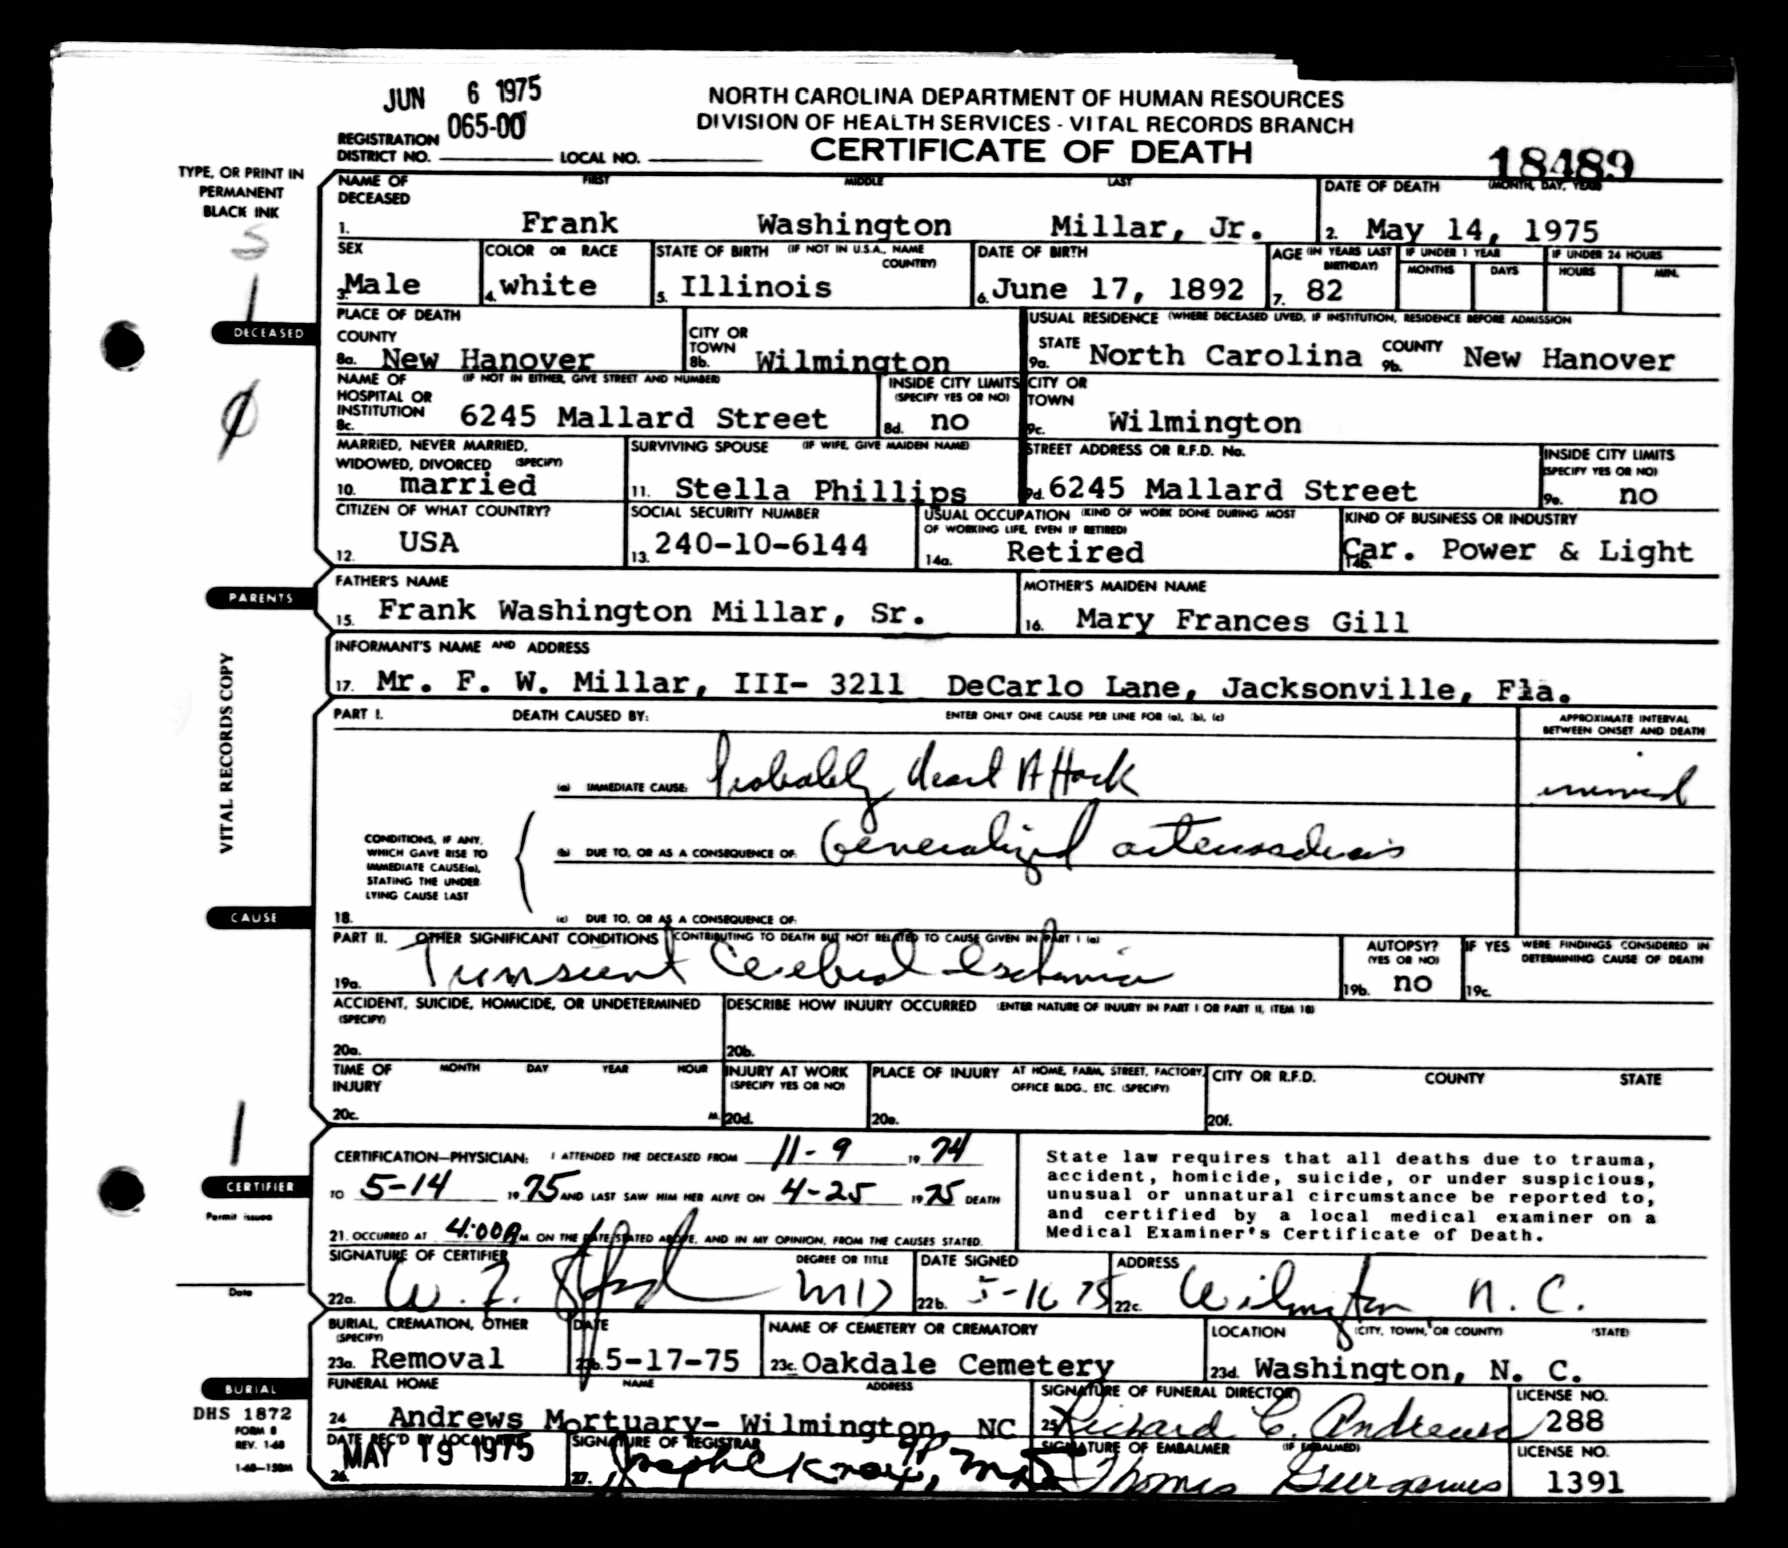 JUN 6 1975
NORTH CAROLINA DEPARTMENT OF HUMAN RESOURCES
DIVISION OF HEALTH SERVICES - VITAL RECORDS BRANCH
CERTIFICATE OF DEATH
REGISTRATION DISTRICT NO. 065-00 LOCAL NO.
18489
TYPE, OR PRINT IN
PERMANENT
BLACK INK
NAME OF DECEASED FIRST MIDDLE LAST DATE OF DEATH (MONTH, DAY, YEAR)
1. Frank Washington Millar, Jr. 2. May 14, 1975
SEX COLOR OR RACE STATE OF BIRTH (IF NOT IN U.S.A., NAME COUNTRY) DATE OF BIRTH AGE (IN YEARS LAST BIRTHDAY) IF UNDER 1 YEAR MONTHS DAYS IF UNDER 24 HOURS HOURS MIN.
3. Male 4. white 5. Illinois 6. June 17, 1892 7. 82
DECEASED
PLACE OF DEATH USUAL RESIDENCE (WHERE DECEASED LIVED, IF INSTITUTION, RESIDENCE BEFORE ADMISSION
COUNTY CITY OR TOWN STATE COUNTY
8a. New Hanover 8b. Wilmington 9a. North Carolina 9b. New Hanover
NAME OF HOSPITAL OR INSTITUTION (IF NOT IN EITHER, GIVE STREET AND NUMBER) INSIDE CITY LIMITS (SPECIFY YES OR NO) CITY OR TOWN
8c. 6245 Mallard Street 8d. no 9c. Wilmington
MARRIED, NEVER MARRIED, WIDOWED, DIVORCED (SPECIFY) SURVIVING SPOUSE (IF WIFE, GIVE MAIDEN NAME) STREET ADDRESS OR R.F.D. No. INSIDE CITY LIMITS (SPECIFY YES OR NO)
10. married 11. Stella Phillips 9d. 6245 Mallard Street 9e. no
CITIZEN OF WHAT COUNTRY? SOCIAL SECURITY NUMBER USUAL OCCUPATION (KIND OF WORK DONE DURING MOST OF WORKING LIFE, EVEN IF RETIRED) KIND OF BUSINESS OR INDUSTRY
12. USA 13. 240-10-6144 14a. Retired 14b. Car. Power & Light
PARENTS
FATHER'S NAME MOTHER'S MAIDEN NAME
15. Frank Washington Millar, Sr. 16. Mary Frances Gill
INFORMANT'S NAME AND ADDRESS
17. Mr. F. W. Millar, III- 3211 DeCarlo Lane, Jacksonville, Fla.
VITAL RECORDS COPY
PART I. DEATH CAUSED BY: ENTER ONLY ONE CAUSE PER LINE FOR (a), (b), (c) APPROXIMATE INTERVAL BETWEEN ONSET AND DEATH
(a) IMMEDIATE CAUSE: Probably Heart Attack
CONDITIONS, IF ANY,
WHICH GAVE RISE TO
IMMEDIATE CAUSE(a),
STATING THE UNDER
LYING CAUSE LAST
(b) DUE TO, OR AS A CONSEQUENCE OF: Generalized arteriosclerosis
CAUSE
18. (c) DUE TO, OR AS A CONSEQUENCE OF:
PART II. OTHER SIGNIFICANT CONDITIONS (CONTRIBUTING TO DEATH BUT NOT RELATED TO CAUSE GIVEN IN PART I (a) AUTOPSY? (YES OR NO) IF YES WERE FINDINGS CONSIDERED IN DETERMINING CAUSE OF DEATH
19a. Transient Cerebral Ischemia 19b. no 19c.
ACCIDENT, SUICIDE, HOMICIDE, OR UNDETERMINED (SPECIFY) DESCRIBE HOW INJURY OCCURRED (ENTER NATURE OF INJURY IN PART I OR PART II, ITEM 18)
20a. 20b.
TIME OF INJURY MONTH DAY YEAR HOUR INJURY AT WORK (SPECIFY YES OR NO) PLACE OF INJURY AT HOME, FARM, STREET, FACTORY, OFFICE BLDG., ETC. (SPECIFY) CITY OR R.F.D. COUNTY STATE
20c. M. 20d. 20e. 20f.
CERTIFIER
Permit issued
Date
CERTIFICATION—PHYSICIAN: I ATTENDED THE DECEASED FROM 11-9 19 74
TO 5-14 19 75 AND LAST SAW HIM HER ALIVE ON 4-25 19 75 DEATH
21. OCCURRED AT 4:00 A M. ON THE DATE STATED ABOVE, AND IN MY OPINION, FROM THE CAUSES STATED.
State law requires that all deaths due to trauma,
accident, homicide, suicide, or under suspicious,
unusual or unnatural circumstance be reported to,
and certified by a local medical examiner on a
Medical Examiner's Certificate of Death.
SIGNATURE OF CERTIFIER DEGREE OR TITLE DATE SIGNED ADDRESS
22a. W. MD 22b. 5-16 75 22c. Wilmington N. C.
BURIAL, CREMATION, OTHER (SPECIFY) DATE NAME OF CEMETERY OR CREMATORY LOCATION (CITY, TOWN, OR COUNTY) (STATE)
23a. Removal 23b. 5-17-75 23c. Oakdale Cemetery 23d. Washington, N. C.
BURIAL
DHS 1872
FORM 8
REV. 1-68
1-68—150M
FUNERAL HOME NAME ADDRESS SIGNATURE OF FUNERAL DIRECTOR LICENSE NO.
24 Andrews Mortuary- Wilmington, NC 25. Richard C. Andrews 288
DATE REC'D BY LOCAL SIGNATURE OF REGISTRAR SIGNATURE OF EMBALMER (IF EMBALMED) LICENSE NO.
26. MAY 19 1975 27. Thomas 1391